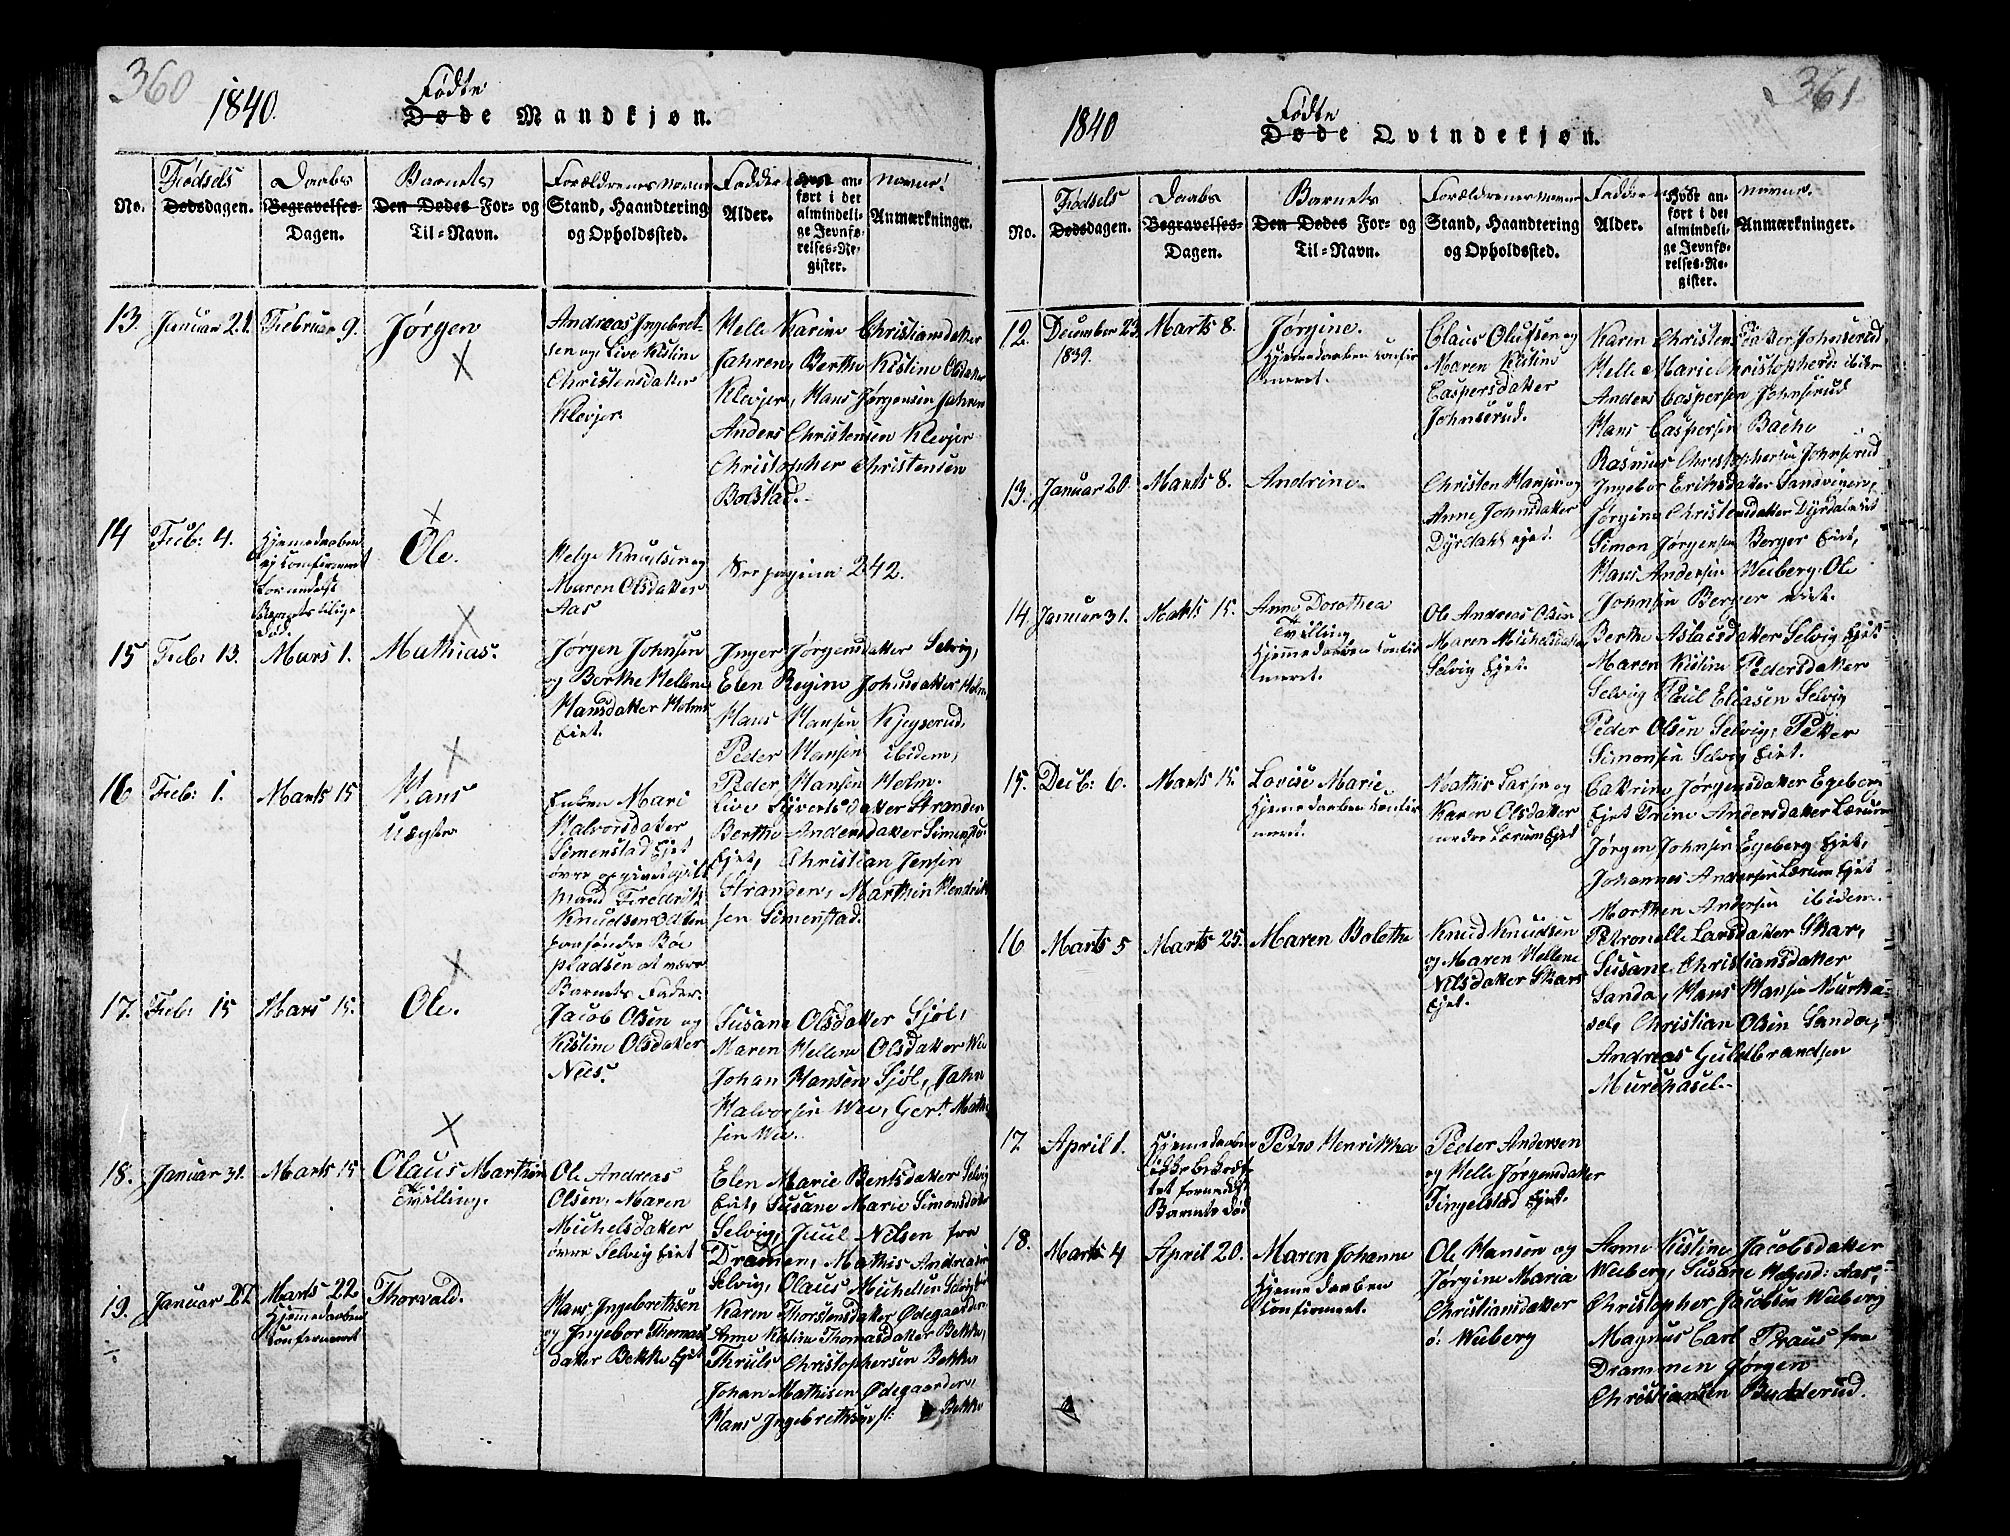 360
1840.
Fødte
Døde Mandkjøn.
No.
Fødsels
Dødsdagen.
Daabs
Begravelses-
Dagen.
Barnets
Den Dødes For- og
Til-Navn.
Forældrenes Navne
Stand, Haandtering
og Opholdssted.
Faddernes
Alder.
Hvor an-
ført i det
almindeli-
ge Jevnfø-
relses-Re-
gister.
Navne.
Anmærkninger.
13.
Januar 21.
Februar 9.
Jørgen
Andreas Ingebret-
sen og Live Kistine
Christensdatter
Klevjer
Helle Karine Christiansdatter
Jahren, Berthe Kistine Olsdatter
Klevjer, Hans Jørgensen Jahren
Anders Christensen Klevjer
Christopher Christensen
Bolstad.
14
Feb: 4.
Hjemmedøben
ej confirmeret
formedelst
Barnets tilige
Død.
Ole.
Helge Knudsen og
Maren Olsdatter
Aas
See pagina 242.
15
Feb: 13.
Mars 1.
Mathias.
Jørgen Johnsen
og Berthe Hellene
Hansdatter Holms
Ejet.
Inger Jørgensdatter Selvig,
Elen Regine Johnsdatter Holm,
Hans Hansen Kjeyserud,
Peder Hansen ibidem,
Peder Hansen Holm.
16
Feb: 1.
Marts 15
Hans
Uægte
Enken Mari
Halvorsdatter
Simenstad Ejet
øvre opgivet gift
Mand Fredrik
Knudsen Olsen
paa søndre Böe
pladsen at være
Barnets Fader.
Live Syvertsdatter Stranden
Berthe Andersdatter Simensta:
Ejet, Christian Jensen
Stranden, Marthin Hendrik
sen Simenstad.
17.
Feb: 15
Mars 15.
Ole.
Jacob Olsen og
Kistine Olsdatter
Næs.
Susane Olsdatter Sjøl,
Maren Hellene Olsdatter Wee
Johan Hansen Sjøl, Jahn
Halvorsen Wee, Gert Math
sen Wee.
18.
Januar 31.
Marts 15
Olaus Marthin
Tvilling.
Ole Andreas
Olsen, Maren
Michelsdatter
øvre Selvig Ejet
Elen Marie Bentsdatter Selvig
Ejet, Susane Marie Simonsdatter
Selvig, Juul Nilsen fra
Dramen, Mathis Andreasen
Selvig, Olaus Michelsen Selvig
19.
Januar 27
Marts 22
Hjemmedøben
Confirmeret
Thorvald.
Hans Ingebrethsen
og Ingebor Thomas
datter Bekke Ejet
Karen Thorstensdatter Ødegaarden
Anne Kistine Thomasdatter Bekke,
Thruls Christophersen Bekke
Johan Mathisen Ødegaarden,
Hans Ingebrethsen Bekke
361
1840
Fødte
Døde Qvindekjøn.
No.
Fødsels
Dødsdagen.
Daabs
Begravelses-
Dagen.
Barnets
Den Dødes For- og
Til-Navn.
Forældrenes Navne
Stand, Haandtering
og Opholdssted.
Faddernes
Alder.
Hvor an-
ført i det
almindeli-
ge Jevnfø-
relses-Re-
gister.
Navne.
Anmærkninger.
12.
December 23.
1839.
Marts 8.
Jørgine.
Hjemmedøben Confir
meret.
Claus Olufsen og
Maren Kistine
Caspersdatter
Johnserud.
Karen Christensdatter Johnserud
Helle Marie Christopherd: ibiem
Anders Caspersen Johnserud
Hans Caspersen Bache
Rasmus Christophersen Johnserud
13.
Januar 20.
Marts 8.
Andrine.
Christen Hansen og
Anne Johnsdatter
Dyrdahls Ejet.
Ingebor Eriksdatter Sandvigen,
Jørgine Christensdatter Dyrdal Ejet
Simon Jørgensen Berger Ejet,
Hans Andersen Weiberg, Ole
Johnsen Berger Eiet.
14.
Januar 31.
Marts 15.
Anne Dorothea
Tvilling
Hjemmedøben Confir
meret.
Ole Andreas Olsen
Maren Michelsdatter
Selvig Ejet.
Berthe Aslacsdatter Selvig Ejet
Maren Kistine Pedersdatter
Selvig Paul Eliasen Selvig
Peder Olsen Selvig, Peter
Simonsen Selvig Ejet.
15.
Decb: 6.
Marts 15.
Lovise Marie
Hjemmedøben Confir
meret.
Mathis Larsen og
Karen Olsdatter
nedre Lærum Ejet
Cathrine Jørgensdatter Egeberg
Ejet Trine Andersdatter Lærum
Jørgen Johnsen Egeberg Ejet,
Johannes Andersen Lærum Ejet
Morthen Andersen ibidem.
16
Marts 5
Marts 25.
Maren Bolethe
Knud Knudsen
og Maren Hellene
Nilsdatter Skars
Ejet.
Petronelle Larsdatter Skar,
Susane Christiansdatter
Sanda, Hans Hansen Murha-
sel, Christian Olsen Sandæ,
Andreas Guldbrandsen
Murehasel.
17.
April 1.
Hjemmedøben
ikke bekræf-
tet formedelst
Barnets Død
Petro Henrikka
Peder Andersen
og Helle Jørgensdatter
Tingelstad Ejet.
18.
Marts 4
April 20.
Maren Johanne
Hjemmedøben
Confirmeret.
Ole Hansen og
Jørgine Maria
Christiansdatter
ö: Weiberg
Anne Kistine Jacobsdatter
Weiberg, Susane Helgesd: Aas,
Christopher Jacobsen Weiberg
Magnus Carl Praus fra
Drammen Jørgen
Christiansen Budderud.